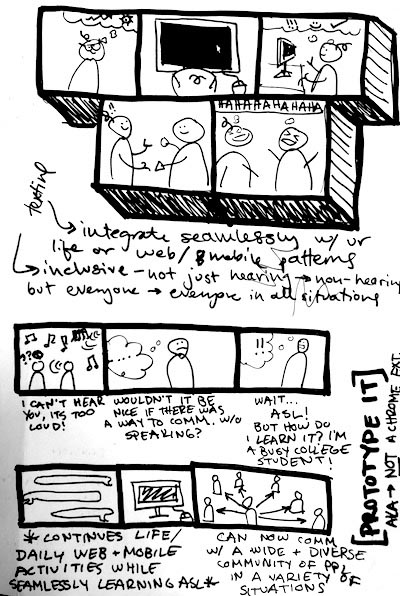 HAHAHAHAHAHAHA
testing
→ integrate seamlessly w/ ur
life or web/mobile patterns
→ inclusive - not just hearing → non-hearing
but everyone → everyone in all situations
??
I CAN'T HEAR
YOU, ITS TOO
LOUD!
...
WOULDN'T IT BE
NICE IF THERE WAS
A WAY TO COMM. W/O
SPEAKING?
!!
WAIT...
ASL!
BUT HOW DO
I LEARN IT? I'M
A BUSY COLLEGE
STUDENT!
[PROTOTYPE IT]
AKA → NOT A CHROME EXT.
* CONTINUES LIFE/
DAILY WEB + MOBILE
ACTIVITIES WHILE
SEAMLESSLY LEARNING ASL *
CAN NOW COMM
W/ A WIDE + DIVERSE
COMMUNITY OF PPL
IN A VARIETY OF
SITUATIONS